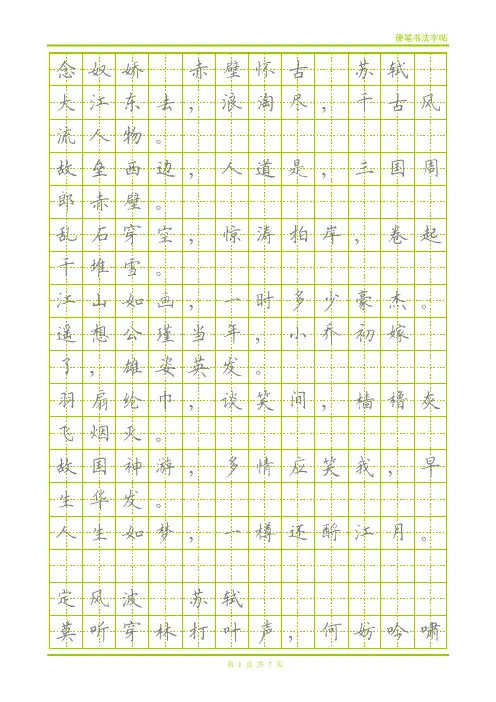 硬笔书法字帖
念奴娇 赤壁怀古 苏轼
大江东去，浪淘尽，千古风
流人物。
故垒西边，人道是，三国周
郎赤壁。
乱石穿空，惊涛拍岸，卷起
千堆雪。
江山如画，一时多少豪杰。
遥想公瑾当年，小乔初嫁
了，雄姿英发。
羽扇纶巾，谈笑间，樯橹灰
飞烟灭。
故国神游，多情应笑我，早
生华发。
人生如梦，一樽还酹江月。
定风波 苏轼
莫听穿林打叶声，何妨吟啸
第 1 页 共 7 页